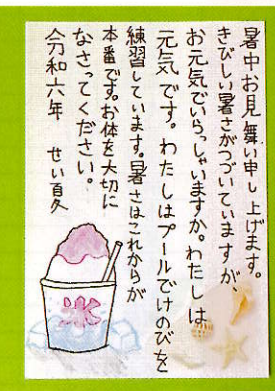 暑中お見舞い申し上げます。
きびしい暑さがつづいていますが、
お元気でいらっしゃいますか。わたしは
元気です。わたしはプールでけのびを
練習しています。暑さはこれからが
本番です。お体を大切に
なさってください。
令和六年 せい夏
氷